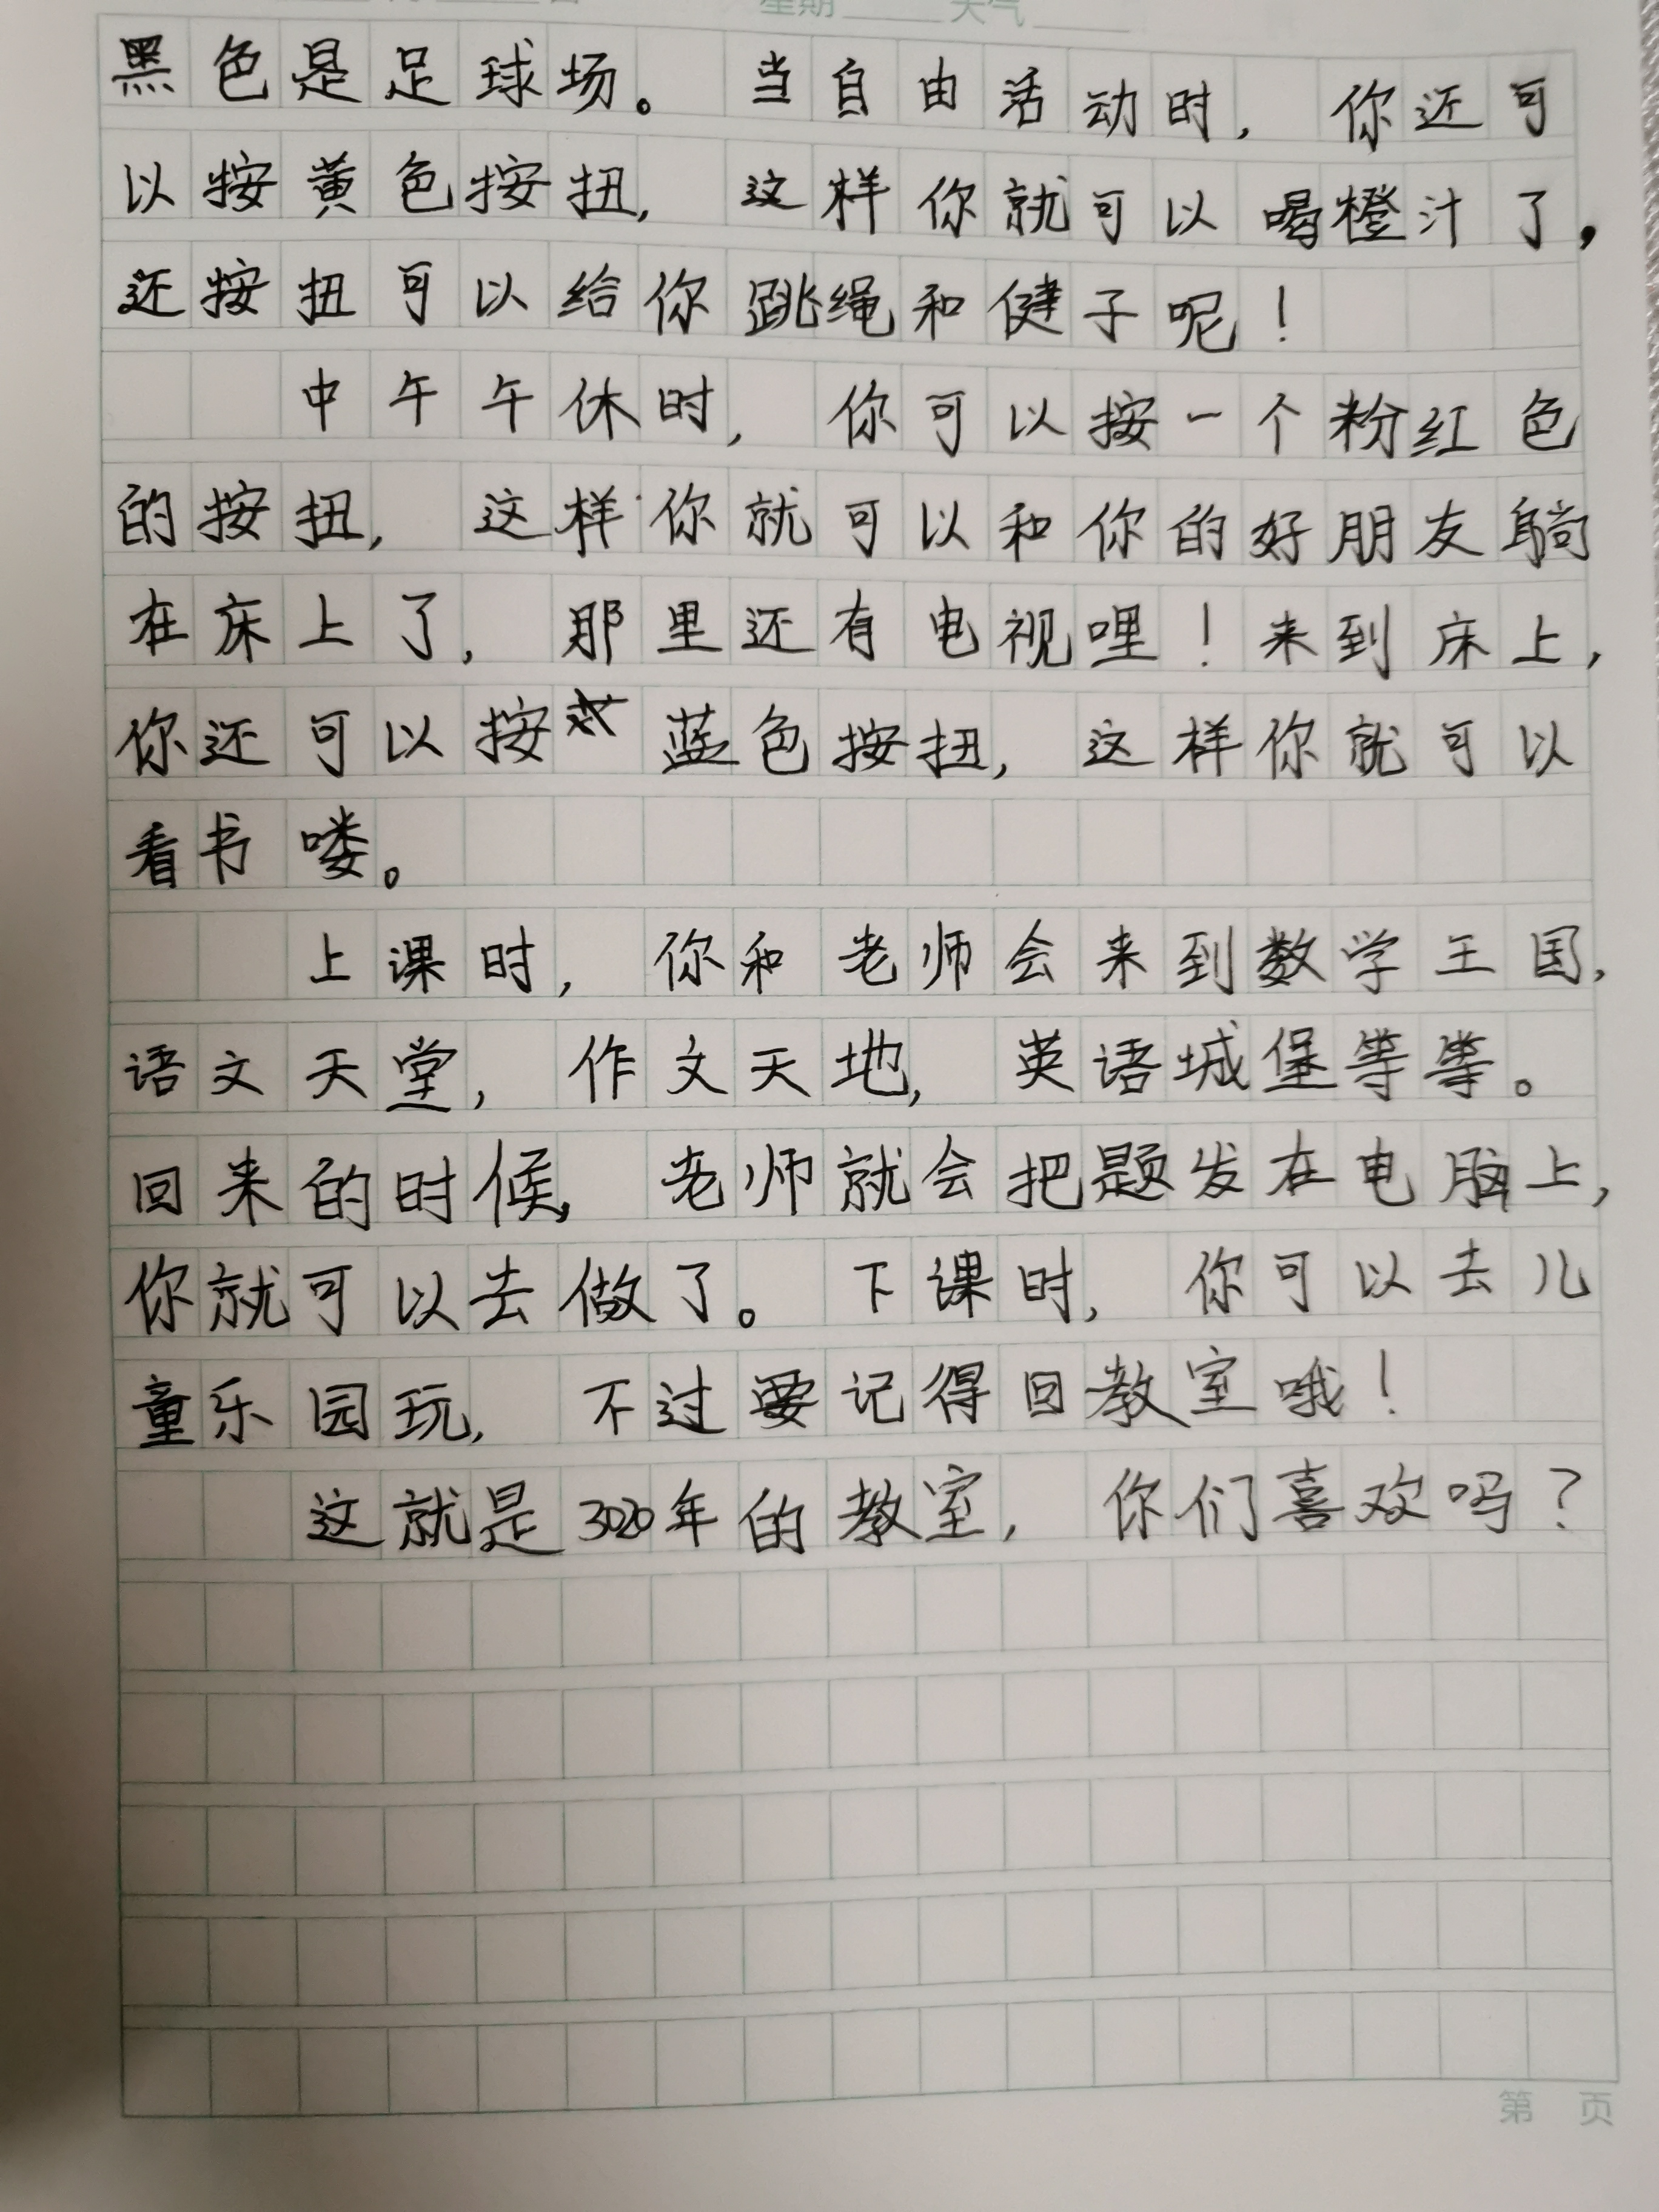 星期 天气
黑色是足球场。当自由活动时,你还可
以按黄色按扭,这样你就可以喝橙汁了,
还按扭可以给你跳绳和健子呢!
中午午休时,你可以按一个粉红色
的按扭,这样你就可以和你的好朋友躺
在床上了,那里还有电视哩!来到床上,
你还可以按蓝色按扭,这样你就可以
看书喽。
上课时,你和老师会来到数学王国,
语文天堂,作文天地,英语城堡等等。
回来的时候,老师就会把题发在电脑上,
你就可以去做了。下课时,你可以去儿
童乐园玩,不过要记得回教室哦!
这就是3020年的教室,你们喜欢吗?
第 页